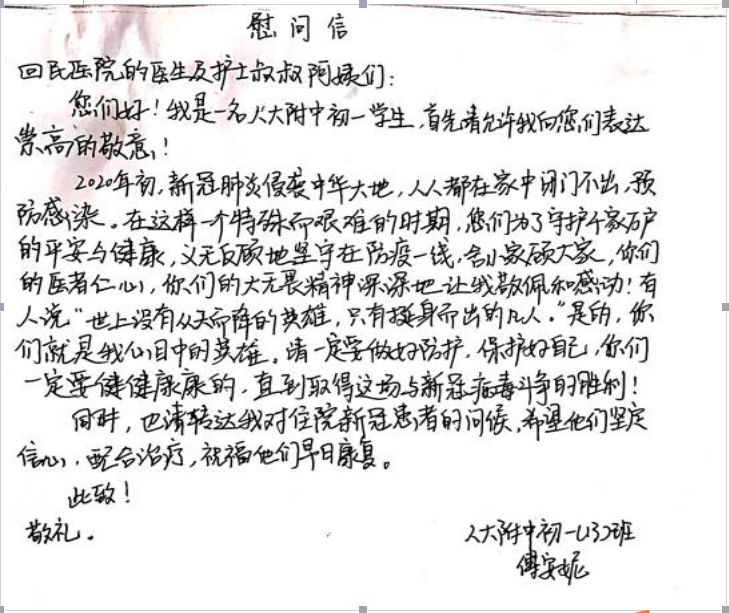 慰问信
回民医院的医生及护士叔叔阿姨们：
您们好！我是一名人大附中初一学生，首先请允许我向您们表达
崇高的敬意！
2020年初，新冠肺炎侵袭中华大地，人人都在家中闭门不出，预
防感染。在这样一个特殊而艰难的时期，您们为了守护千家万户
的平安与健康，义无反顾地坚守在防疫一线，舍小家顾大家，你们
的医者仁心，你们的大无畏精神深深地让我敬佩和感动！有
人说“世上没有从天而降的英雄，只有挺身而出的凡人。”是的，你
们就是我心目中的英雄。请一定要做好防护，保护好自己，你们
一定要健健康康的，直到取得这场与新冠病毒斗争的胜利！
同时，也请转达我对住院新冠患者的问候，希望他们坚定
信心，配合治疗，祝福他们早日康复。
此致！
敬礼。
人大附中初一（13）班
傅安妮